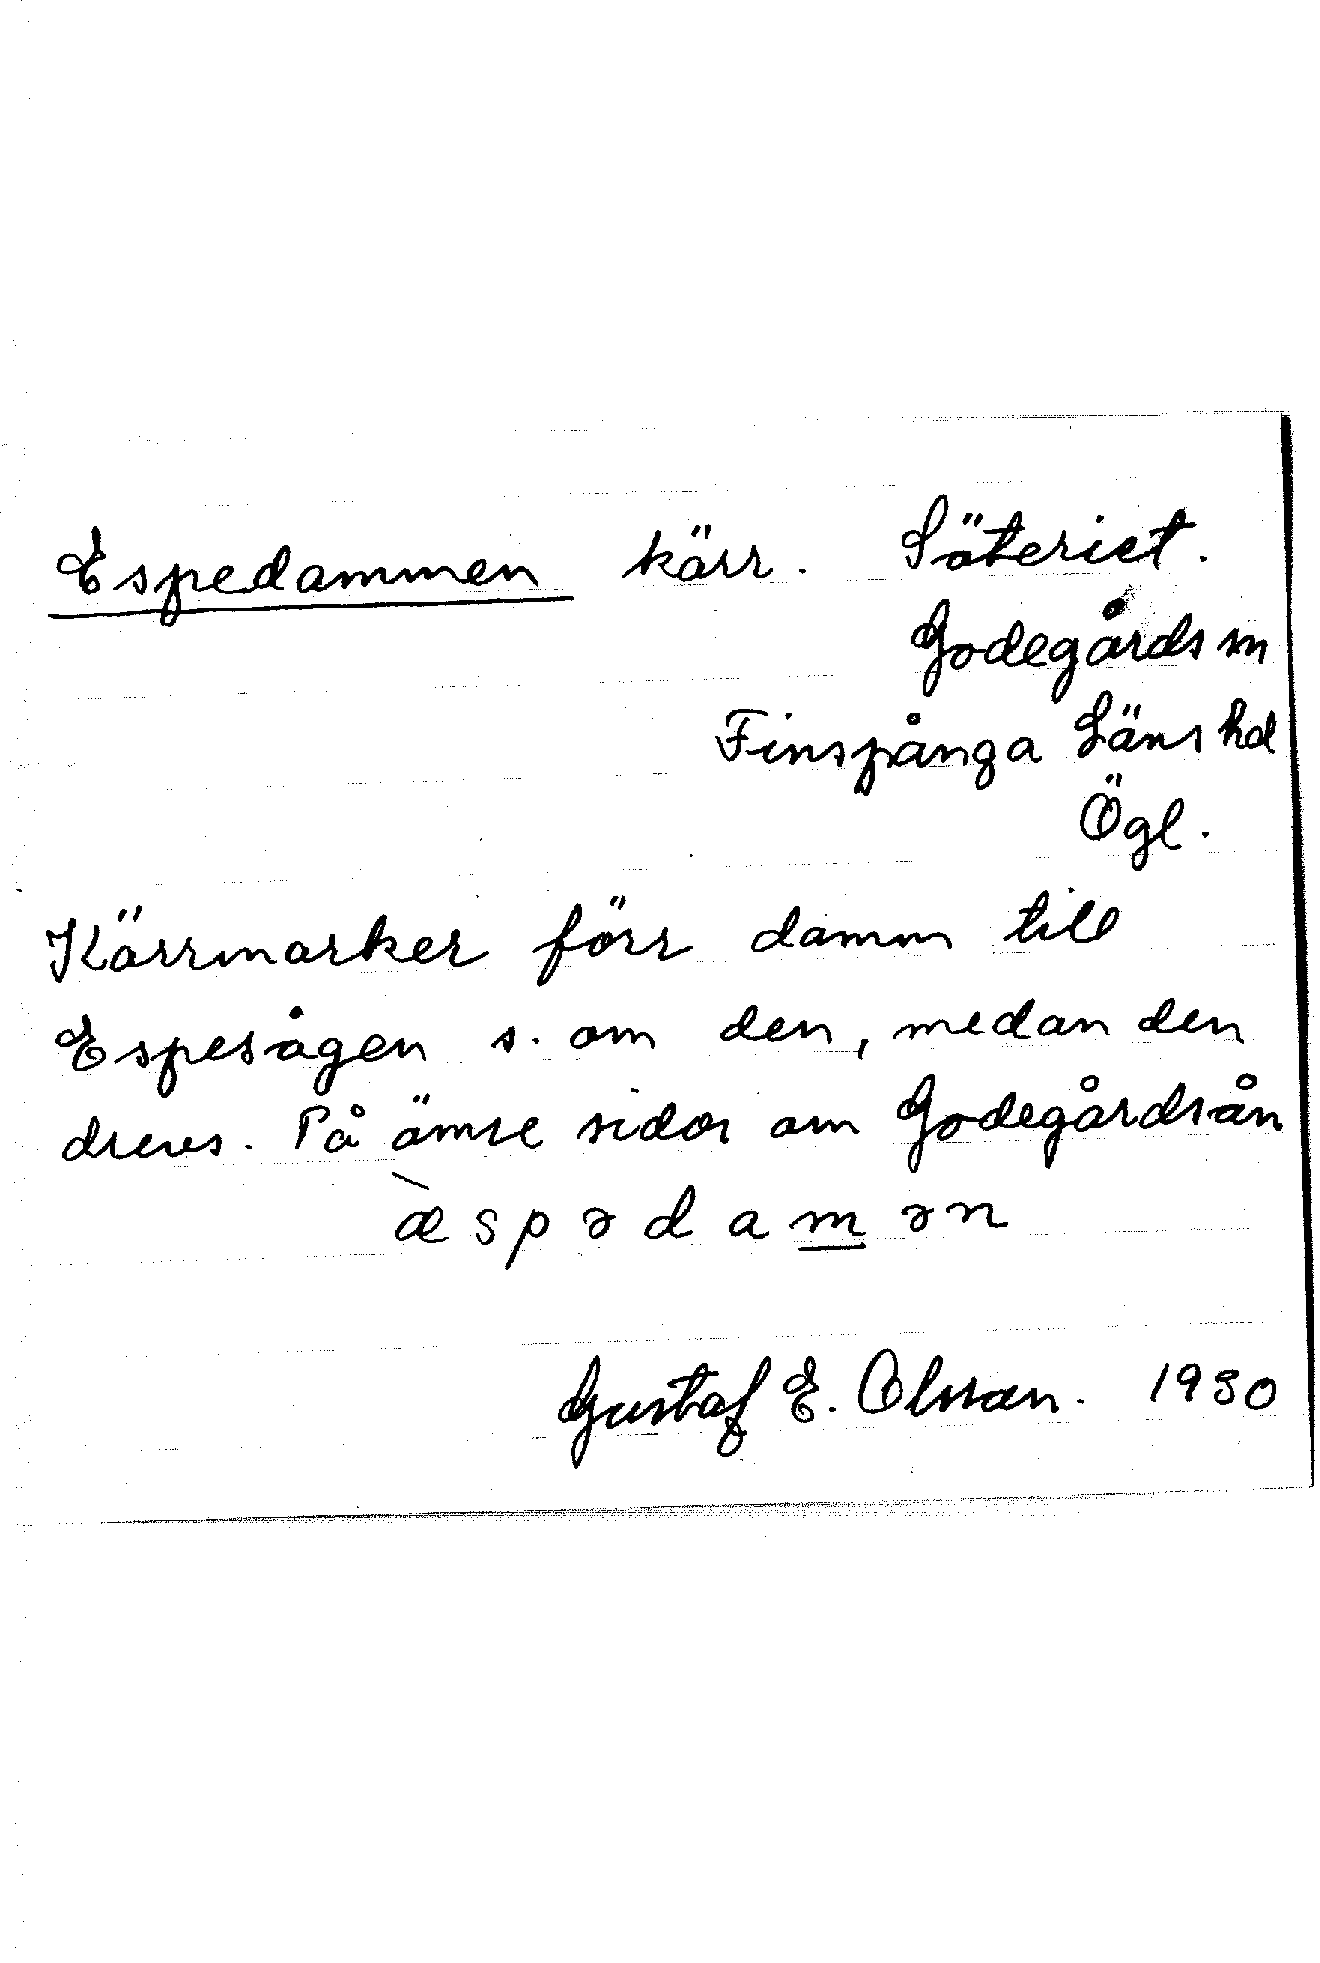 Espedammen kärr. Säteriet.
Godegårds sn
Finspånga Läns hd
Ögl.
Kärrmarker förr damm till
Espesågen s. om den, medan den
drevs. På ömse sidor om Godegårdsån
æspədamən
Gustaf E. Olsson. 1930